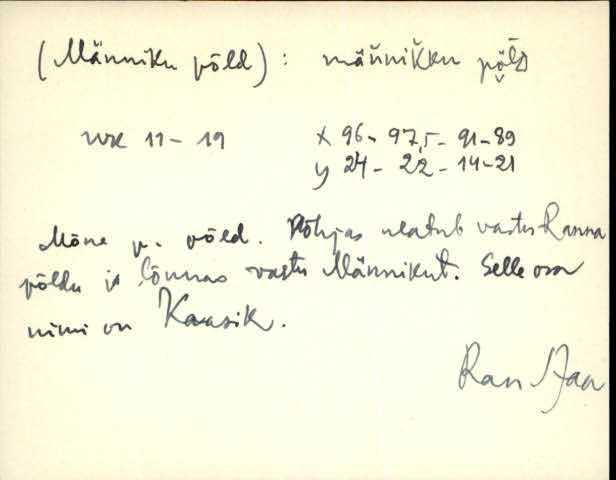 (Männiku põld): männikku põld
WK 11-19 x 96- 97,5- 91-89
y 24- 22- 14-21
Mõne p. põld. Põhjas ulatub vastu Ranna
põldu ja lõunas vastu Männikut. Selle osa
nimi on Kaasik.
Ran Aaa